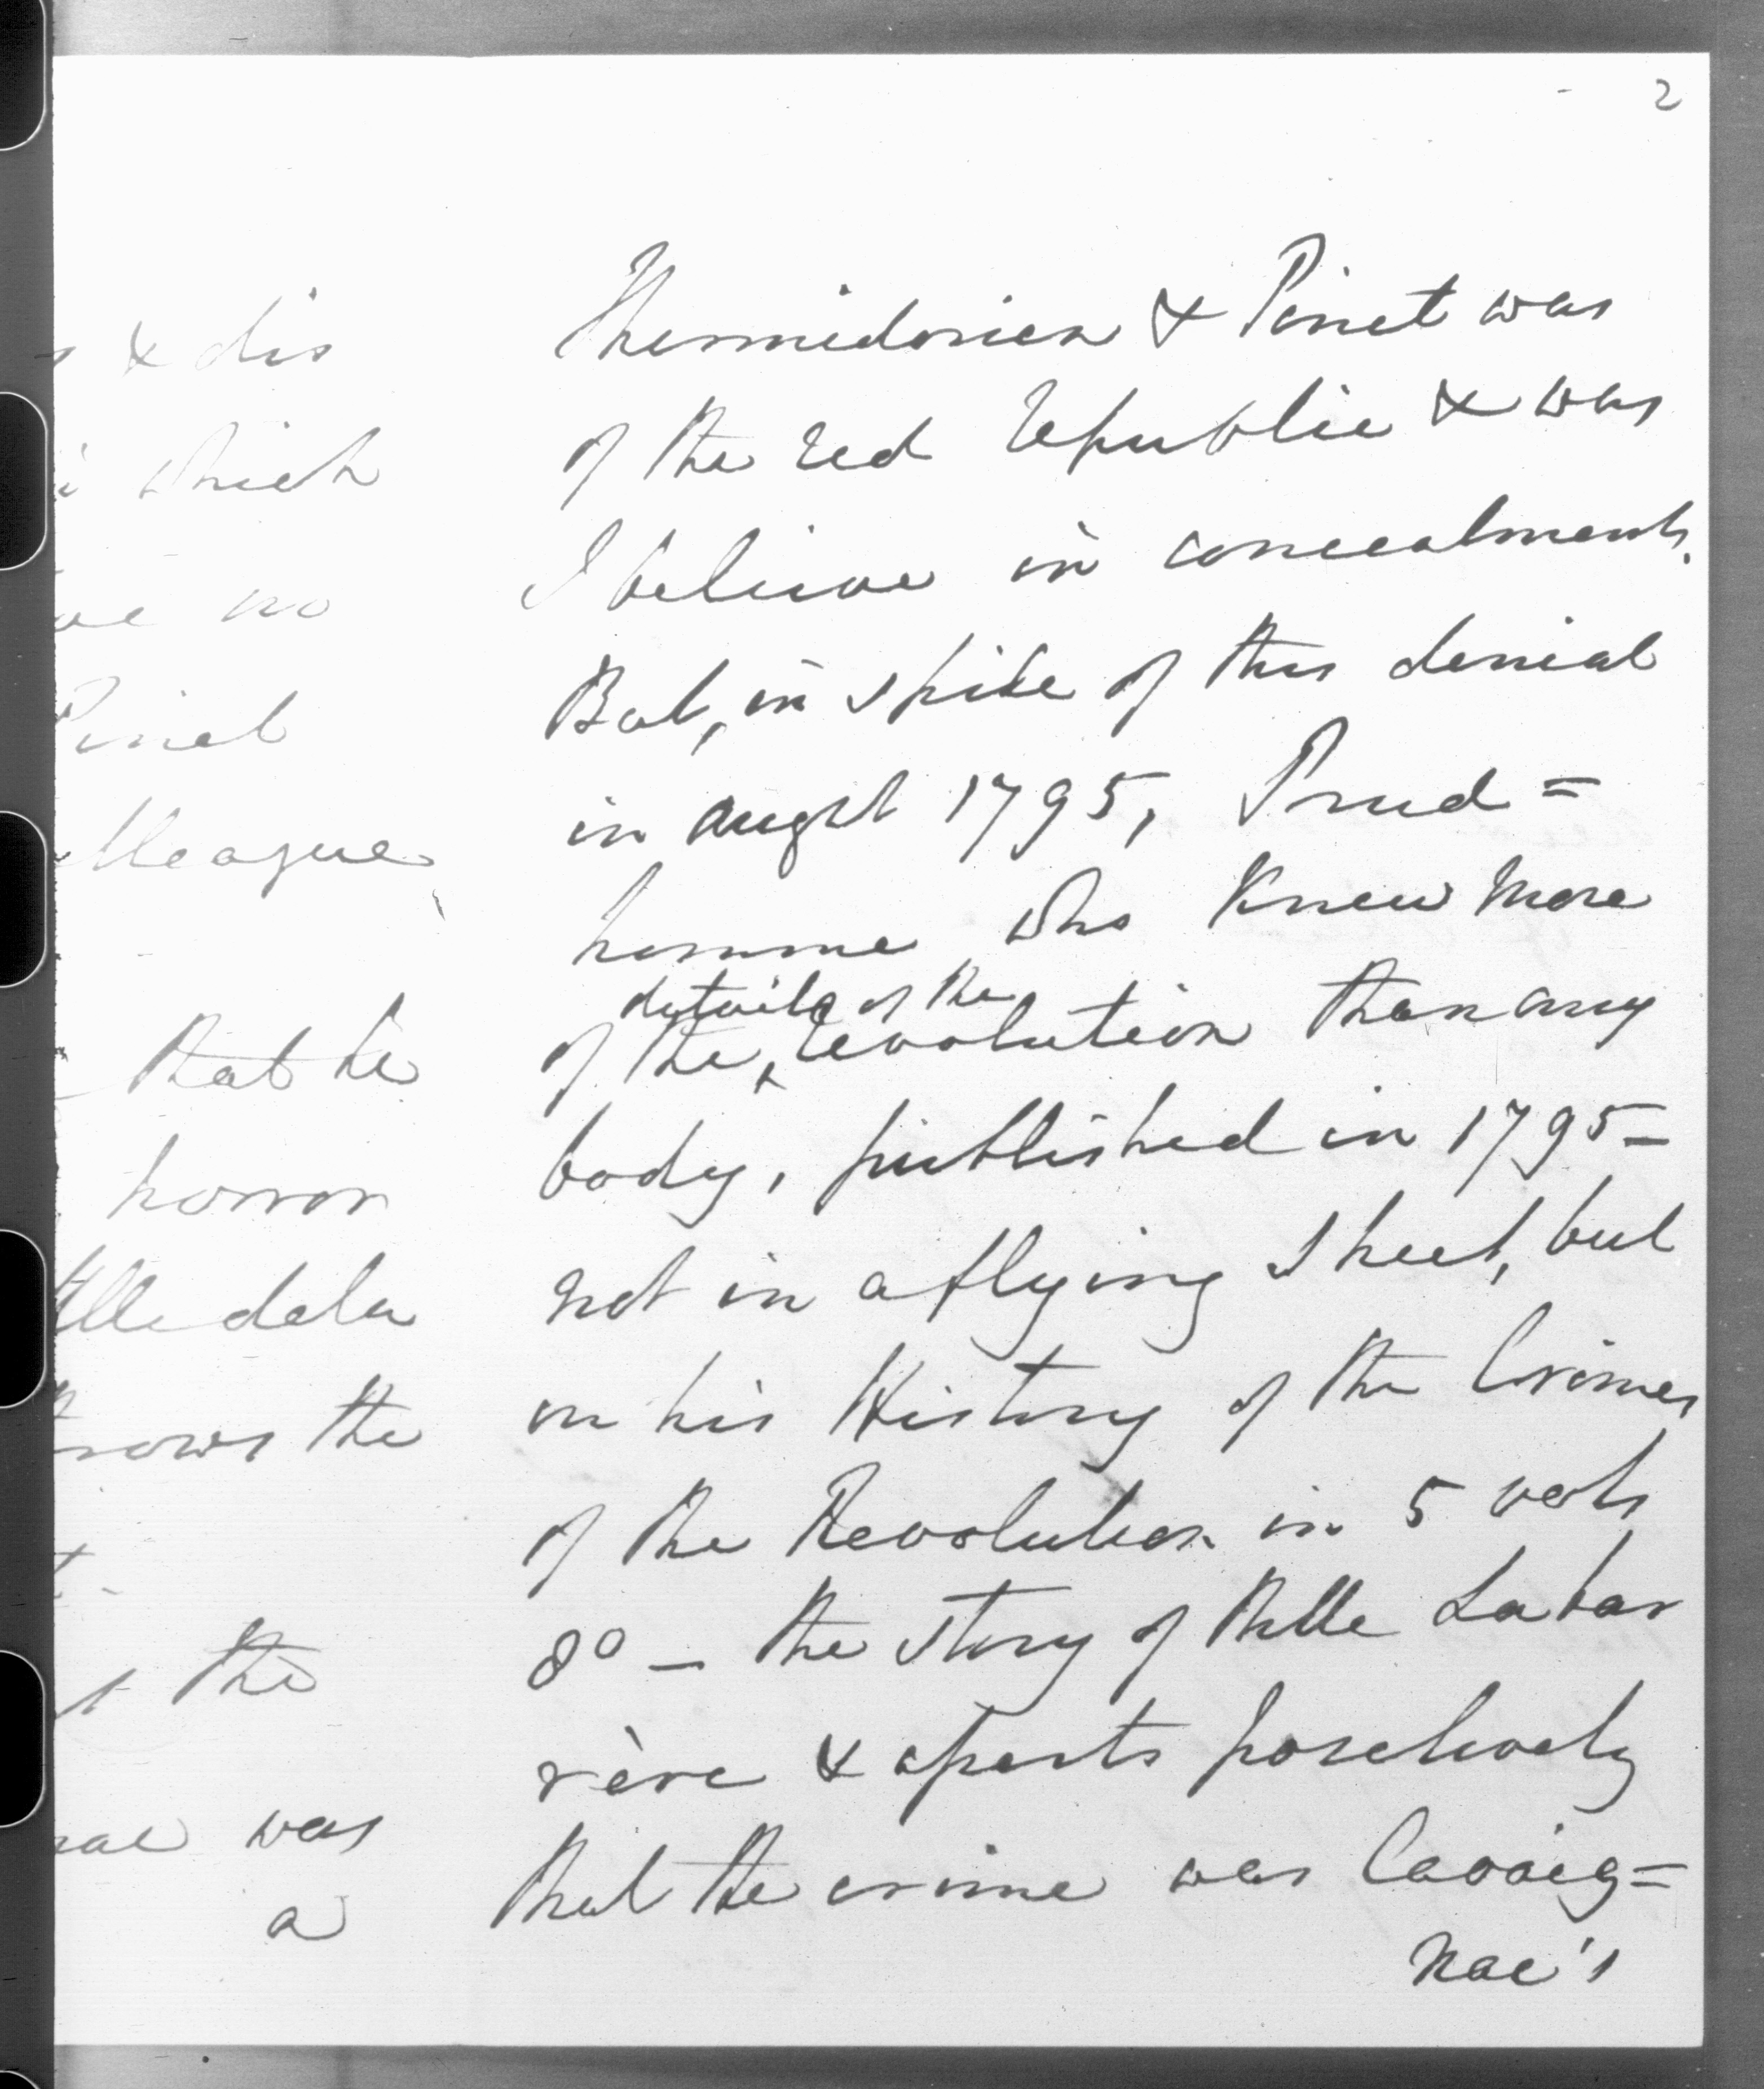 2
Thermidorien & Pinet was
of the red republic & was
I believe in concealment.
But, in spite of this denial
in augst 1795, Prud=
homme who knew more
details of the
of the revolution than any
body, published in 1795–
not in a flying sheet, but
in his History of the Crimes
of the Revolution in 5 vols
8º – the story of Mlle Labar
rère & asserts positively
that the crime was Cavaig=
nac's
& dis
which
no
Pinet
lleague
that he
horror
Mlle dela
the
the
was
a